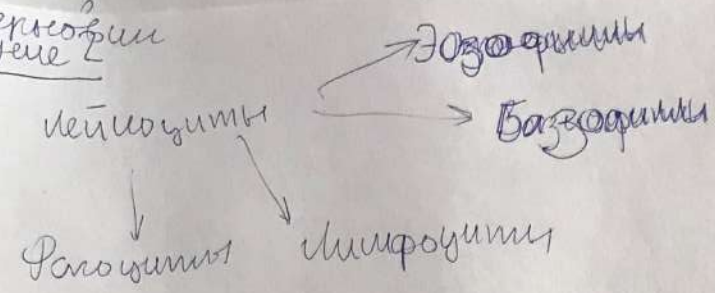 Эозофилы
лейкоциты
Базофилы
Фагоциты Лимфоциты